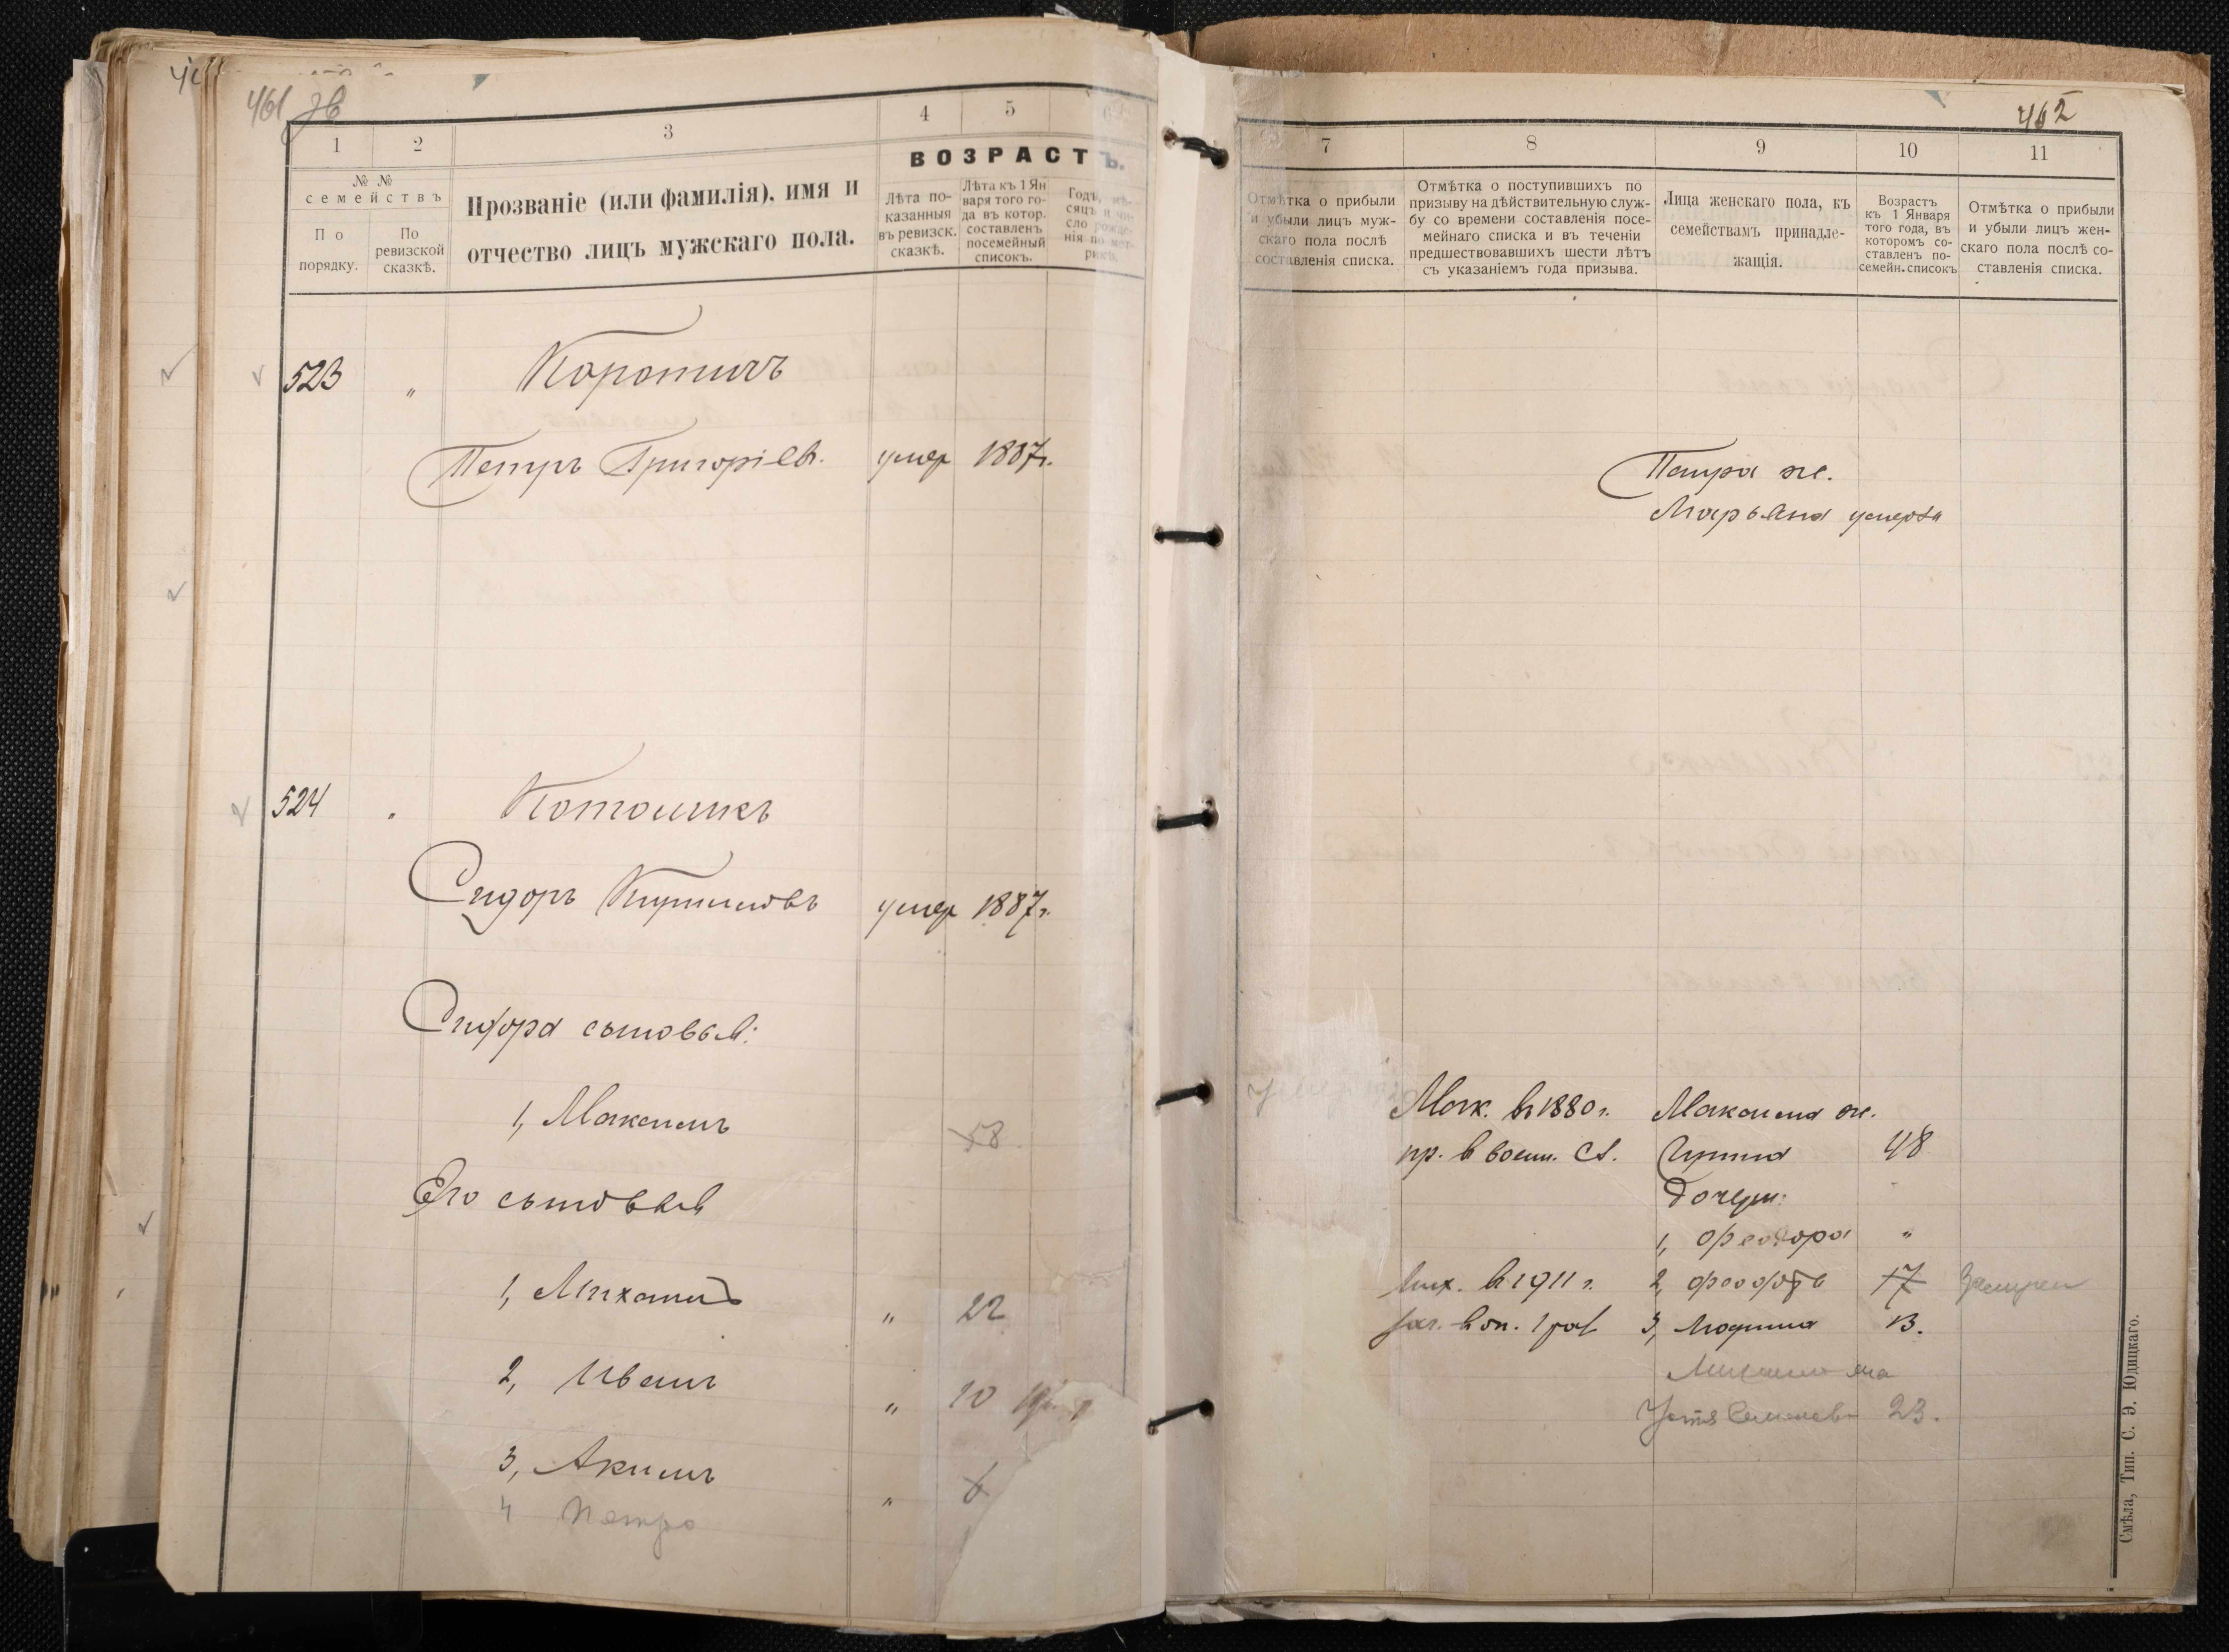 461 зв
1
2
3
4
5
№ №
семействъ
По
порядку.
По
ревизской
сказкѣ.
Прозваніе (или фамилія), имя и
отчество лицъ мужскаго пола.
ВОЗРАСТЪ.
Лѣта по-
казанныя
въ ревизск.
сказкѣ.
Лѣта къ 1 Ян
варя того го-
да въ котор.
составленъ
посемейный
списокъ.
Годъ, мѣ-
сяцъ и чи-
сло рожде-
нія по мет-
рикѣ.
523 " Коротичъ
Петръ Григоріевъ. умер 1887г.
524 " Котошикъ
Сидоръ Кириловъ умер 1887г.
Сидора сыновья:
1, Максимъ 58
Его сыновья
1, Михаилъ " 22
2, Иванъ " 10
3, Акимъ " 6
4 Петро
462
7
8
9
10
11
Отмѣтка о прибыли
и убыли лицъ муж-
скаго пола послѣ
составленія списка.
Отмѣтка о поступившихъ по
призыву на дѣйствительную служ-
бу со времени составленія посе-
мейнаго списка и въ теченіи
предшествовавшихъ шести лѣтъ
съ указаніемъ года призыва.
Лица женскаго пола, къ
семействамъ принадле-
жащія.
Возрастъ
къ 1 Января
того года, въ
которомъ со-
ставленъ по-
семейн. списокъ
Отмѣтка о прибыли
и убыли лицъ жен-
скаго пола послѣ со-
ставленія списка.
Петра ж.
Марьяна умерла
Мак. въ 1880 г. Максима ж.
пр. в воен. сл. Ирина 48
Дочери:
1, Феодора "
Мих. въ 1911 г. 2, 17 Замужем
зач. в оп. 1 раз. 3, 13.
Михаила жена
Устя Семенова 23.
Смѣла, Тип. С. Э. Юдицкаго.